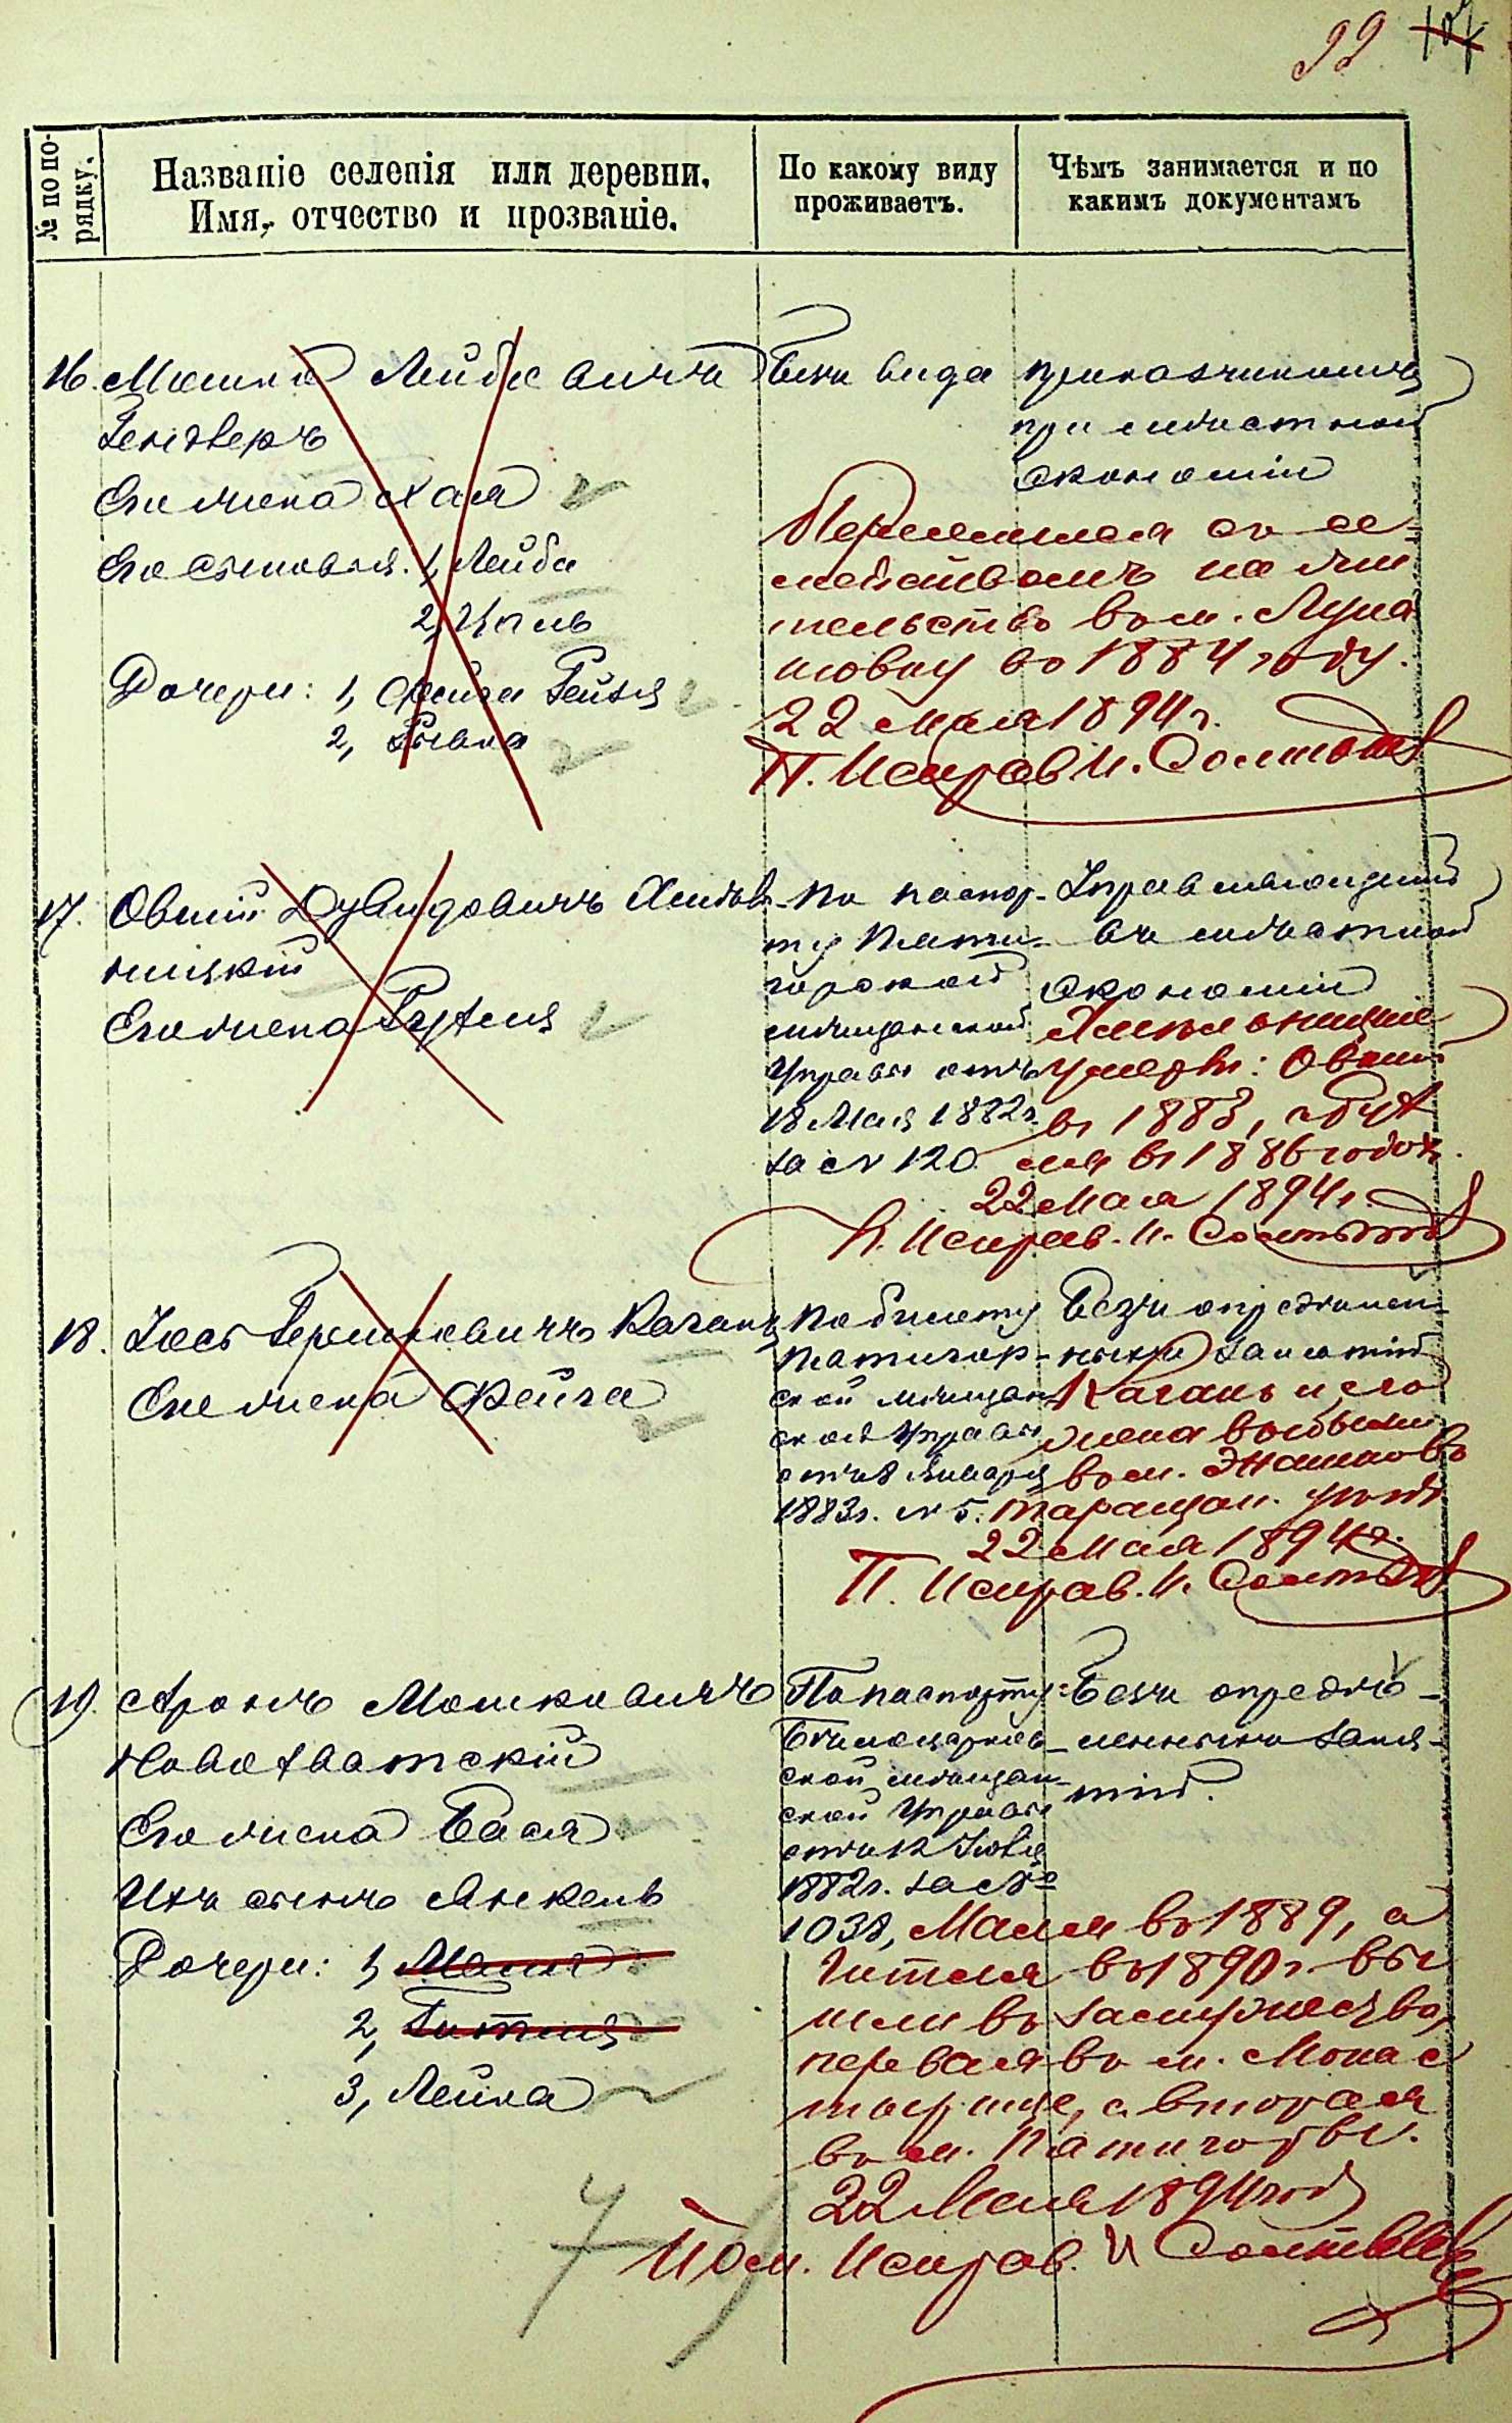 99
№ по по-
рядку.
Названіе селенія или деревни.
Имя, отчество и прозваніе.
По какому виду
проживаетъ.
Чѣмъ занимается и по
какимъ документамъ
16. Мошко Лейбовичъ
Зендверъ
Его жена Хая
Его сыновья: 1, Лейба
2,
Дочери: 1, Фейга Рейзя
2, Рывка
Безъ вида
приказчикомъ
при мѣстной
экономіи
Переселился съ се-
мействомъ на жи
тельство въ м.
въ 1884 году.
22 Мая 1894 г.
П. Исправ. И.
17. Овшій Дувидовичъ Хмѣль-
ницкій
Его жена Рухля
По паспор-
ту Пяти-
горской
мѣщанской
Управы отъ
18 Мая 1882 г.
за № 120
Управляющимъ
въ мѣстной
экономіи
Хмельницкіе
умерли: Овшій
въ 1883, а Рух
ля въ 1886 годахъ.
22 Мая 1894 г.
П. Исправ. И.
18. Іось Гершковичъ Каганъ
Его жена Фейга
По билету
Пятигор-
ской мѣщан
ской Управы
отъ 8 Января
1883 г. № 5.
Безъ опредѣлен-
ныхъ занятій
Каганъ и его
жена выбыли
въ м. Жашковъ
Таращан. уѣзда
22 Мая 1894 г.
П. Исправ. И.
19. Аронъ Мошковичъ
Новохватскій
Его жена Бася
Ихъ сынъ Янкель
Дочери: 1, Маля
2, Гитля
3, Лейка
По паспорту
Бѣлоцерков-
ской мѣщан-
ской Управы
отъ 12 Іюля
1882 г. за №
1038,
Безъ опредѣ-
ленныхъ заня-
тій.
Маля въ 1889, а
Гитля въ 1890 г. вы
шли въ замужество,
первая въ м. Монас
тырище, а вторая
въ м. Пятигоры.
22 Мая 1894 года
Пом. Исправ. И